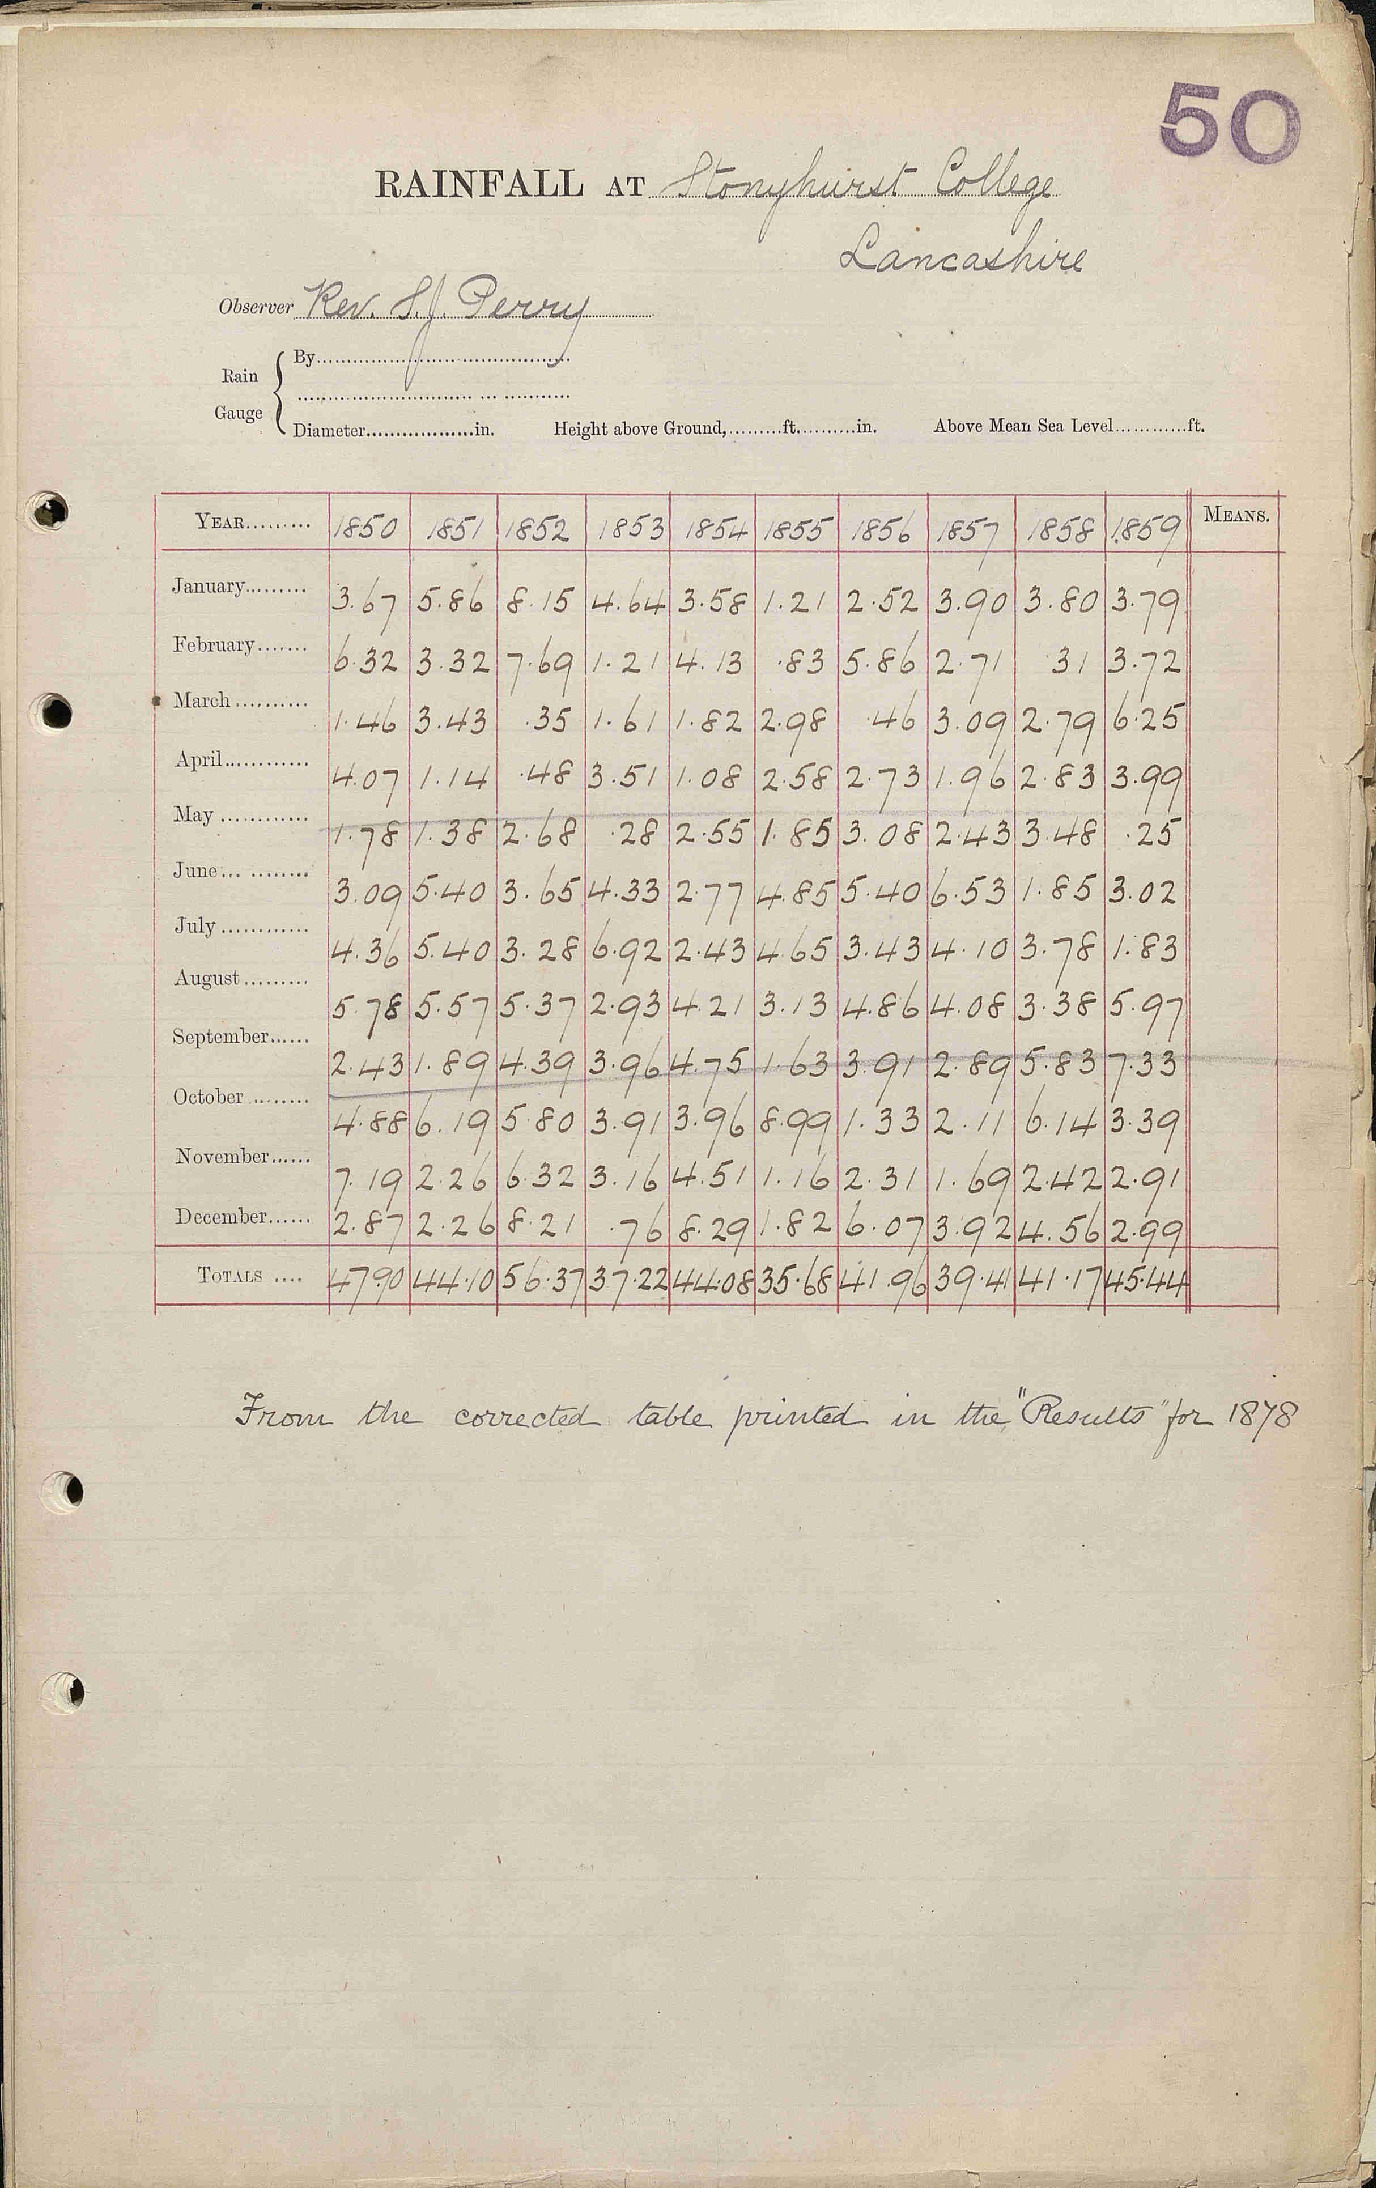 50
RAINFALL AT Stonyhurst College
Lancashire
Observer Rev. S.J. Perry
Rain Gauge { By
Diameter in. Height above Ground, ft. in. Above Mean Sea Level ft.
YEAR 1850 1851 1852 1853 1854 1855 1856 1857 1858 1859 MEANS.
January 3.67 5.86 8.15 4.64 3.58 1.21 2.52 3.90 3.80 3.79
February 6.32 3.32 7.69 1.21 4.13 .83 5.86 2.71 31 3.72
March 1.46 3.43 .35 1.61 1.82 2.98 .46 3.09 2.79 6.25
April 4.07 1.14 .48 3.51 1.08 2.58 2.73 1.96 2.83 3.99
May 1.78 1.38 2.68 .28 2.55 1.85 3.08 2.43 3.48 .25
June 3.09 5.40 3.65 4.33 2.77 4.85 5.40 6.53 1.85 3.02
July 4.36 5.40 3.28 6.92 2.43 4.65 3.43 4.10 3.78 1.83
August 5.78 5.57 5.37 2.93 4.21 3.13 4.86 4.08 3.38 5.97
September 2.43 1.89 4.39 3.96 4.75 1.63 3.91 2.89 5.83 7.33
October 4.88 6.19 5.80 3.91 3.96 8.99 1.33 2.11 6.14 3.39
November 7.19 2.26 6.32 3.16 4.51 1.16 2.31 1.69 2.42 2.91
December 2.87 2.26 8.21 .76 8.29 1.82 6.07 3.92 4.56 2.99
TOTALS 47.90 44.10 56.37 37.22 44.08 35.68 41.96 39.41 41.17 45.44
From the corrected table printed in the "Results" for 1878